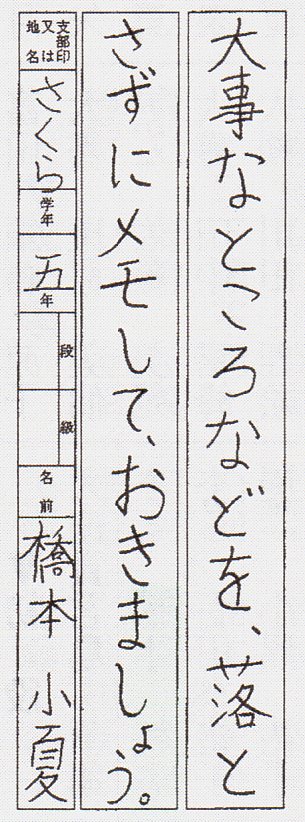 大事なところなどを、落と
さずにメモして、おきましょう。
支部印又は地名 さくら 学年 五年 段 級 名前 橋本 小夏